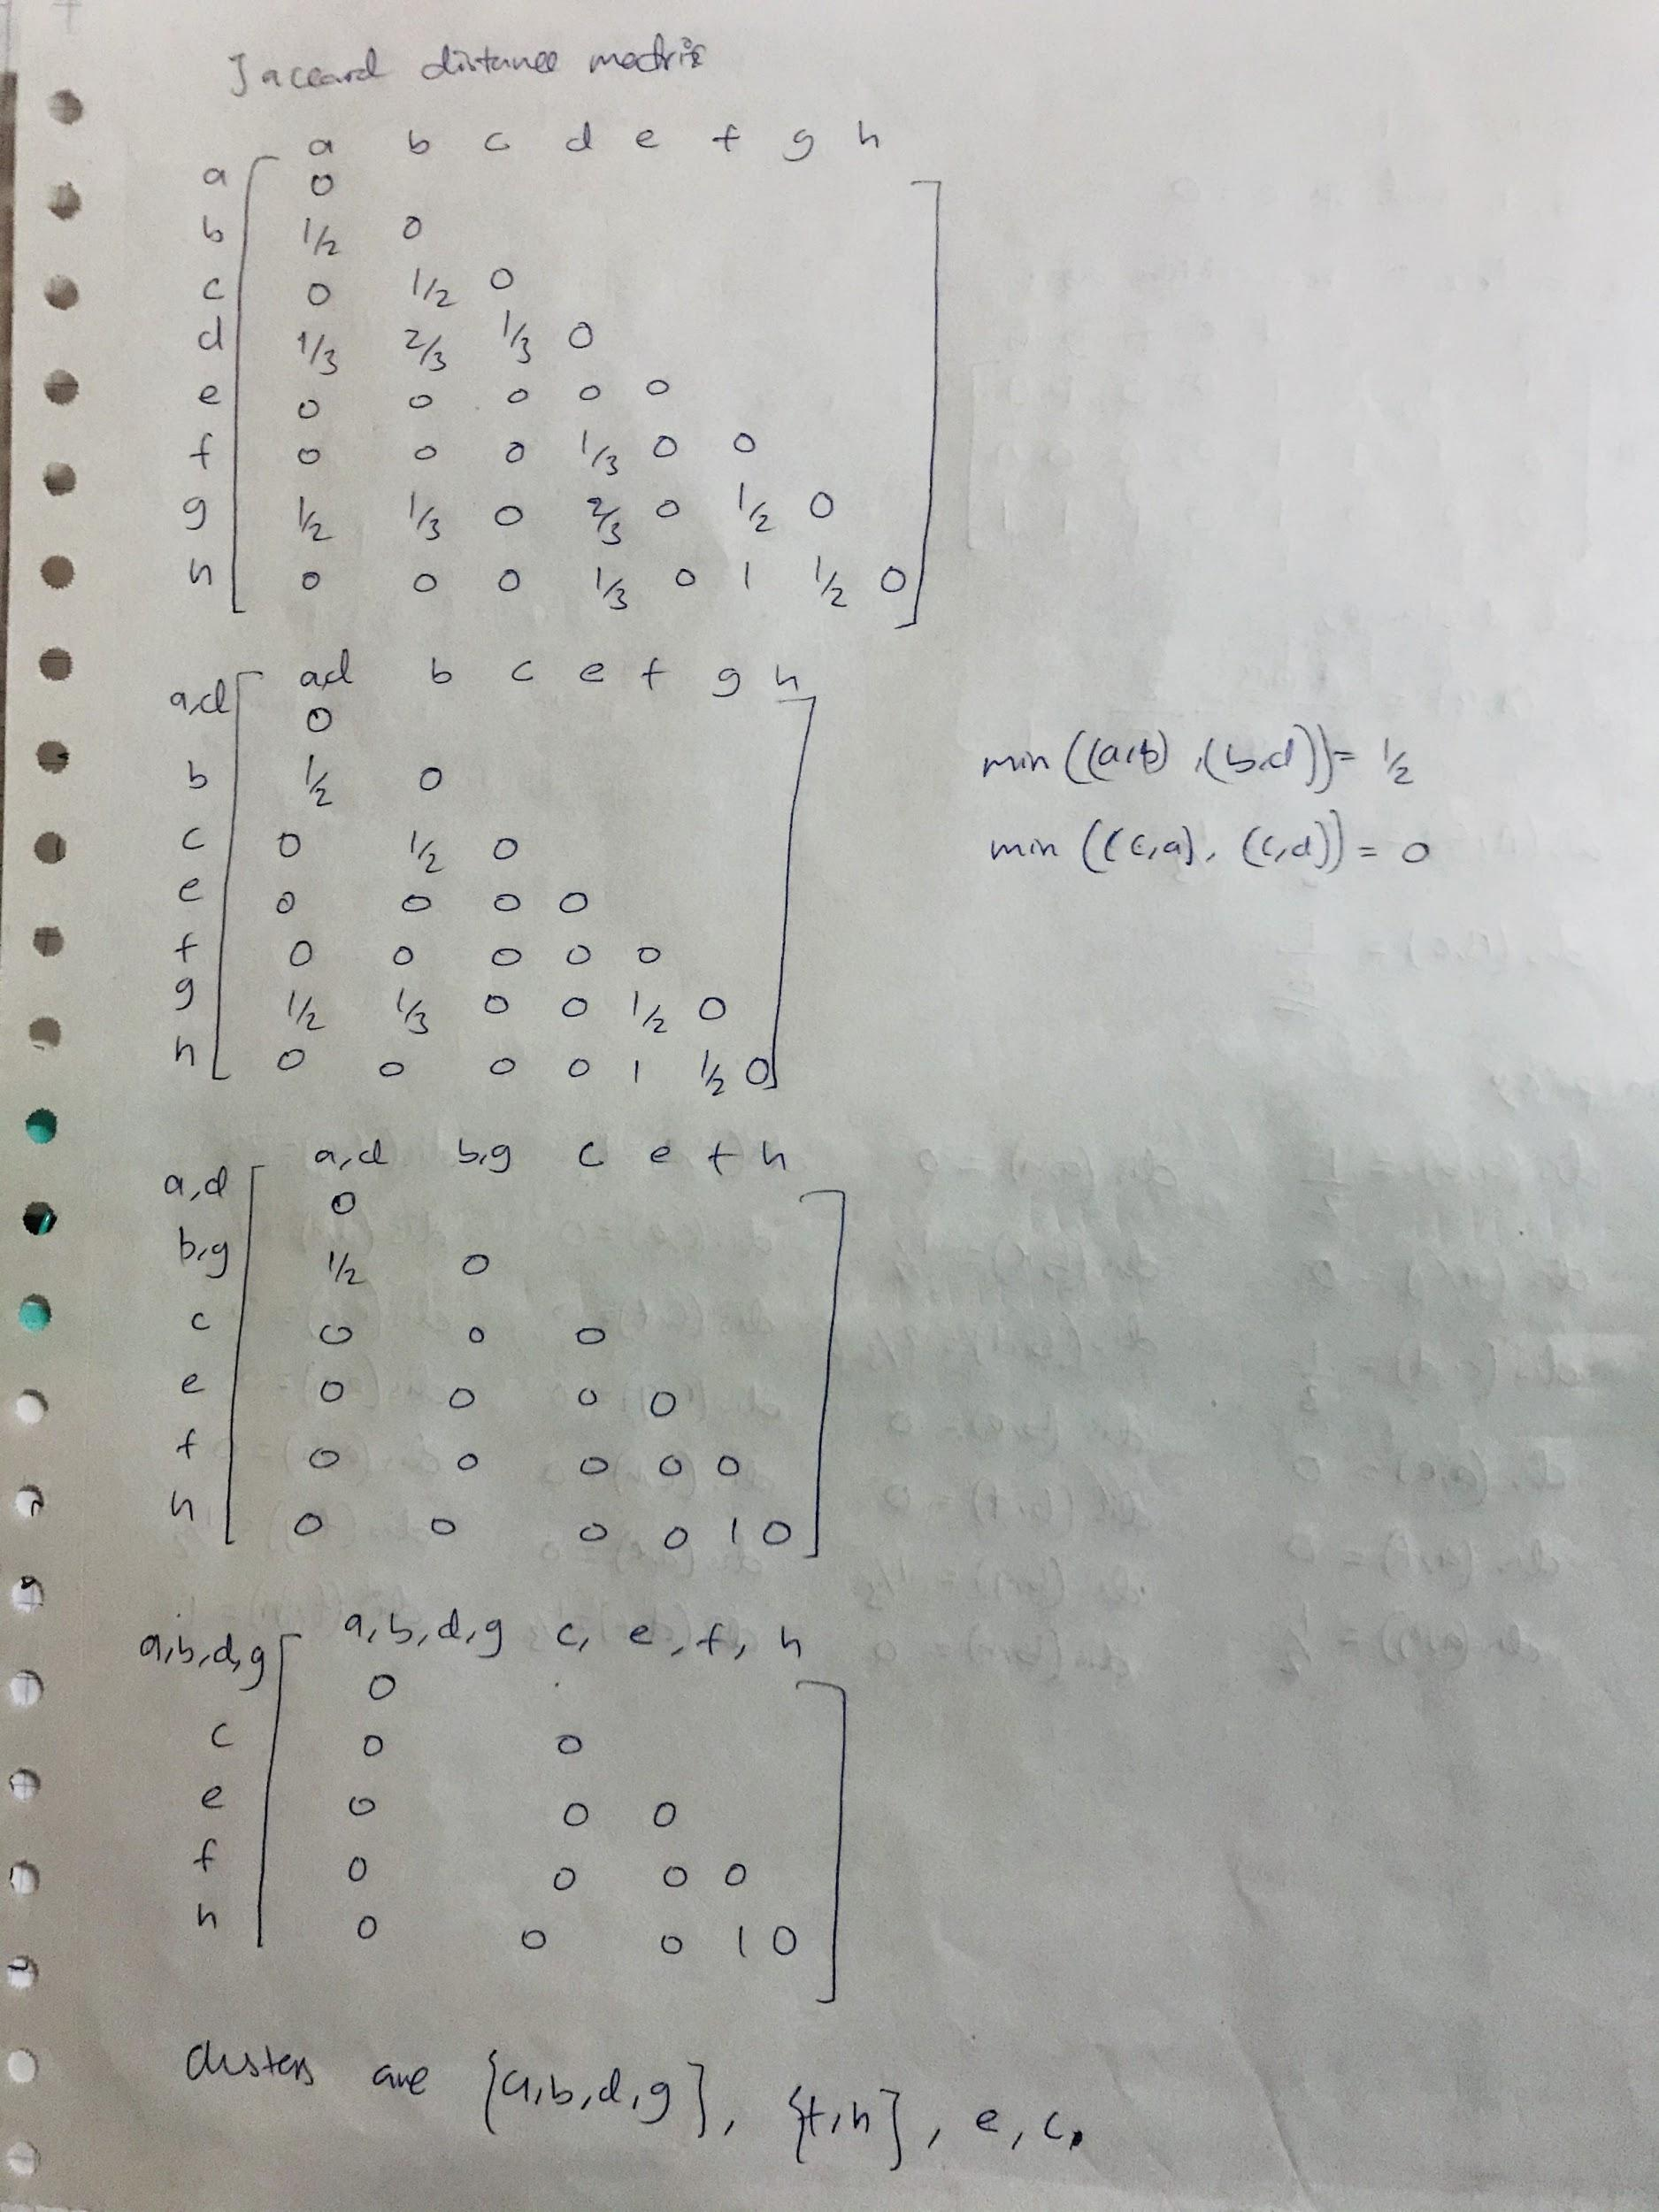 Jaccard distance matrix
a b c d e f g h
a 0
b 1/2 0
c 0 1/2 0
d 1/3 2/3 1/3 0
e 0 0 0 0 0
f 0 0 0 1/3 0 0
g 1/2 1/3 0 2/3 0 1/2 0
h 0 0 0 1/3 0 1 1/2 0
a,d b c e f g h
a,d 0
b 1/2 0
c 0 1/2 0
e 0 0 0 0
f 0 0 0 0 0
g 1/2 1/3 0 0 1/2 0
h 0 0 0 0 1 1/2 0
min ((a,b), (b,d)) = 1/2
min ((c,a), (c,d)) = 0
a,d b,g c e f h
a,d 0
b,g 1/2 0
c 0 0 0
e 0 0 0 0
f 0 0 0 0 0
h 0 0 0 0 1 0
a,b,d,g c, e, f, h
a,b,d,g 0
c 0 0
e 0 0 0
f 0 0 0 0
h 0 0 0 1 0
clusters are {a,b,d,g}, {f,h}, e, c.